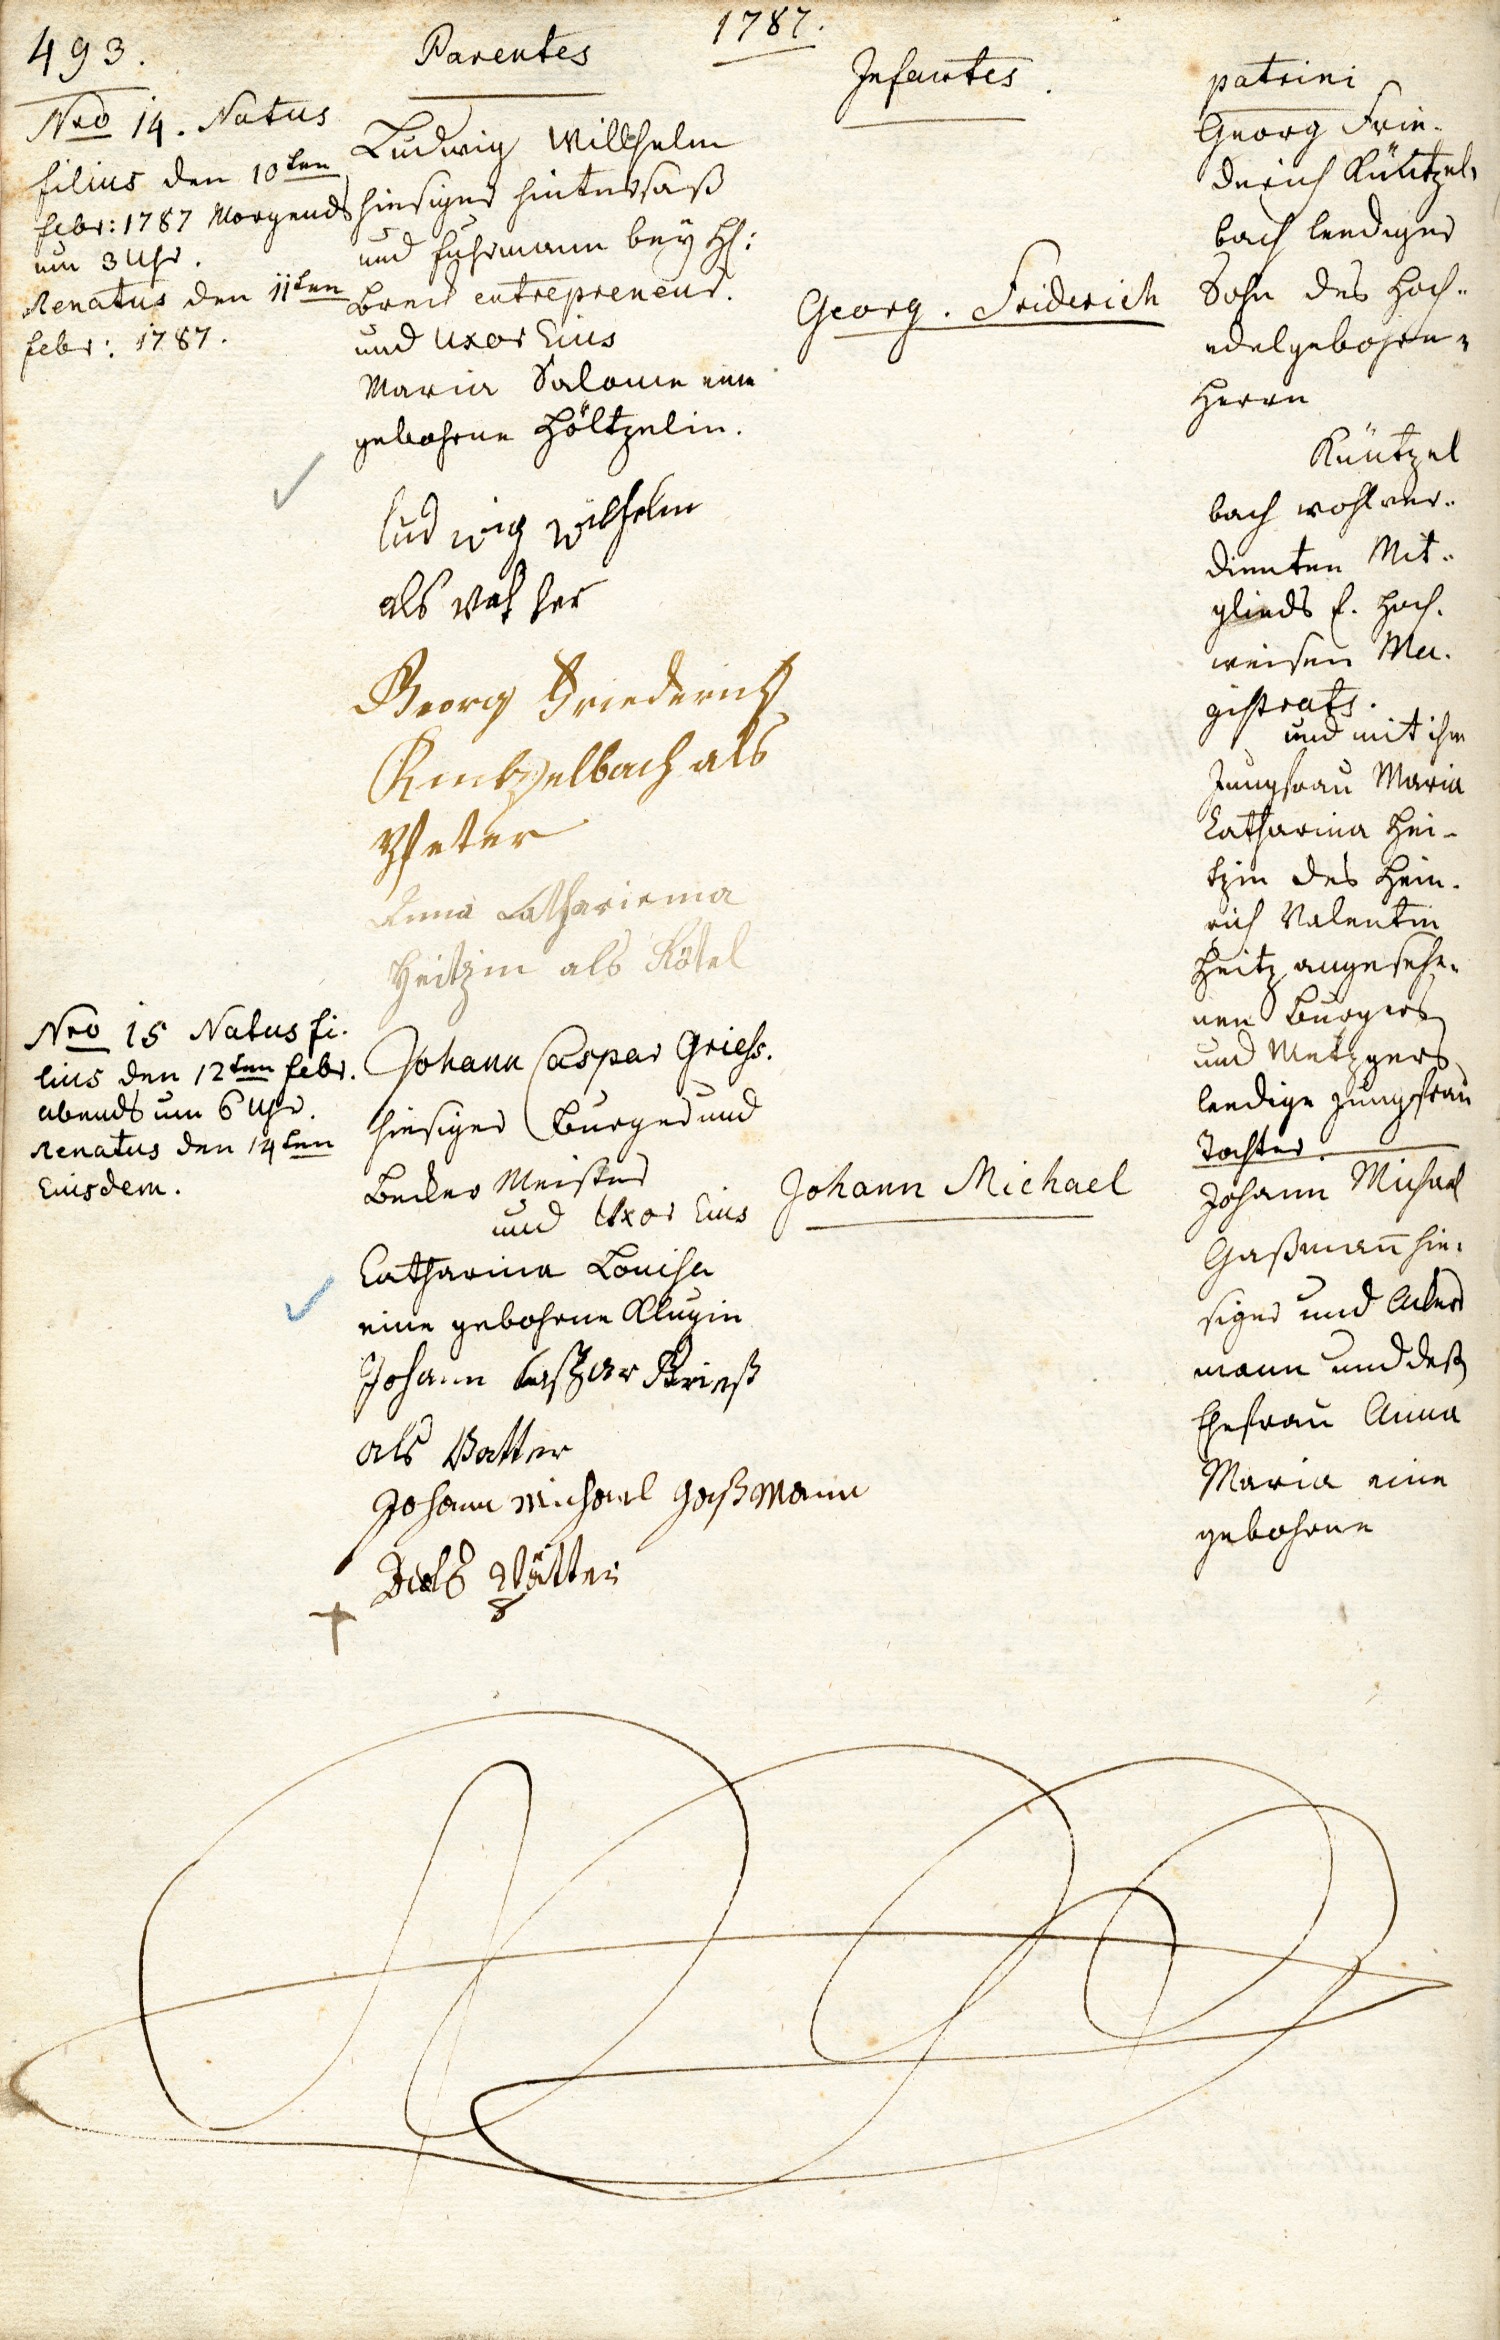 493.
1787.
Parentes
Infantes.
patrini
Nro 14. Natus
filius den 10ten
febr: 1787 Morgends
um 3 Uhr.
Renatus den 11ten
febr: 1787.
Ludwig Willhelm
hiesiger hintersaß
und fuhrmann bey H:
entrepreneur.
und Uxor Eius
Maria Salome eine
gebohrne Höltzelin.
ludwig wilhelm
als
Georg Friederich
Kintzelbach als
Pfeter
Anna Cathariema
Heitzin als Götel
Georg. Friderich
Georg Frie-
derich Küntzel-
bach leediger
Sohn des Hoch-
edelgebohrn-
Herrn
Küntzel
bach wohlver-
dienten Mit-
glieds E. Hoch-
weisen Ma-
gistrats.
und mit ihm
Jungfrau Maria
Catharina Hei-
tzin des Hein-
rich Valentin
Heitz angesehe-
nen Burgers
und Metzgers
leedige Jungfrau
Tochter.
Nro 15 Natus fi-
lius den 12ten febr.
abends um 6 Uhr.
Renatus den 14ten
Eiusdem.
Johann Caspar Griess.
hiesiger Burger und
Becker Meister
und Uxor Eius
Catharina Louisa
eine gebohrne Klugin
Johann Caspar Grieß
als Vatter
Johann Michael Gaßmann
als
Johann Michael
Johann Michael
Gaßmann hie-
siger und Acker
mann und deß
Ehefrau Anna
Maria eine
gebohrne